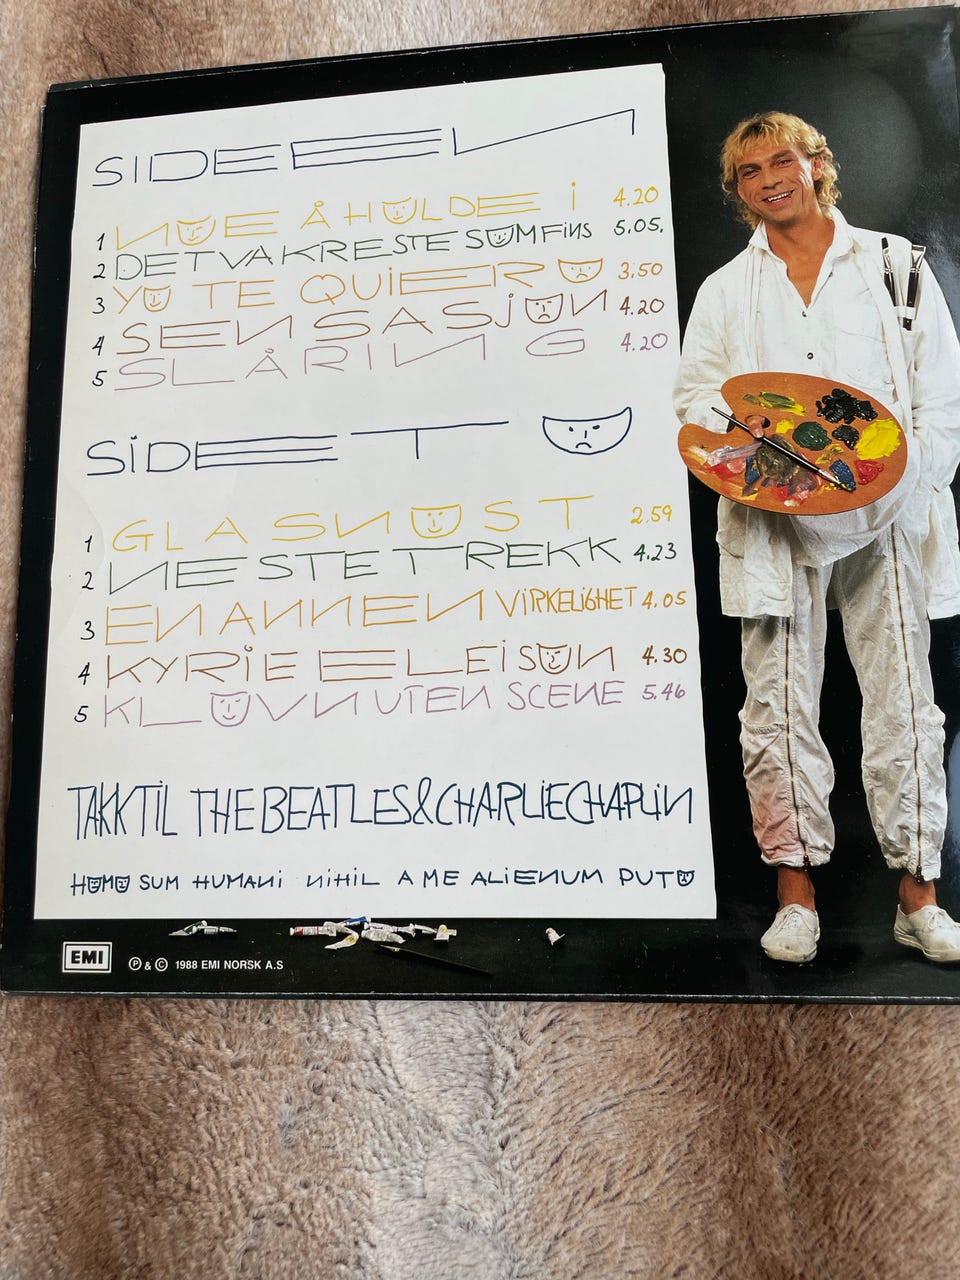 SIDE EN
1 NOE Å HOLDE i 4.20
2 DET VAKRESTE SOM FiNS 5.05.
3 YO TE QUiERO 3.50
4 SENSASjON 4.20
5 SLÅRING 4.20
SiDE TO
1 GLASNOST 2.59
2 NESTE TREKK 4.23
3 EN ANNEN ViRKELiGHET 4.05
4 KYRiE ELEiSON 4.30
5 KLOVN UTEN SCENE 5.46
TAKK TiL THE BEATLES & CHARLiE CHAPLiN
HOMO SUM HUMANi NiHiL A ME ALiENUM PUTO
EMI ℗ & © 1988 EMI NORSK A.S